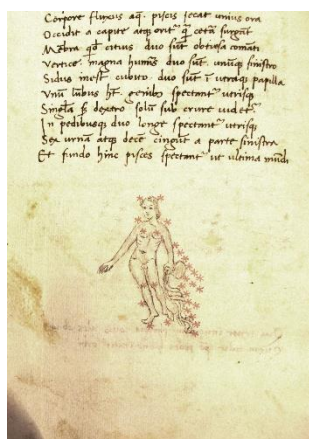 Corpore fluxus aq̄ piscis secat unius ora
Occidit a capite atq; orit᷑ q̄ cetā surgant
Mēbra q̄ citius duo sūt obtusa comāti
Vertice magna humīs duo sūt unūq; sinistro
Sidus inest cubito duo sūt ī utraq; papilla
Vnū lūbus ht̄ spectant᷑ utrisq;
Singl̄a s; dextro solū sub crure uidet᷑
In pedibusq; duo longe spectant᷑ utrisq;
Sex urnā atq; decē cingūt a parte sinistra
Et fundo hinc pisces spectant᷑ ut ultima mūdi